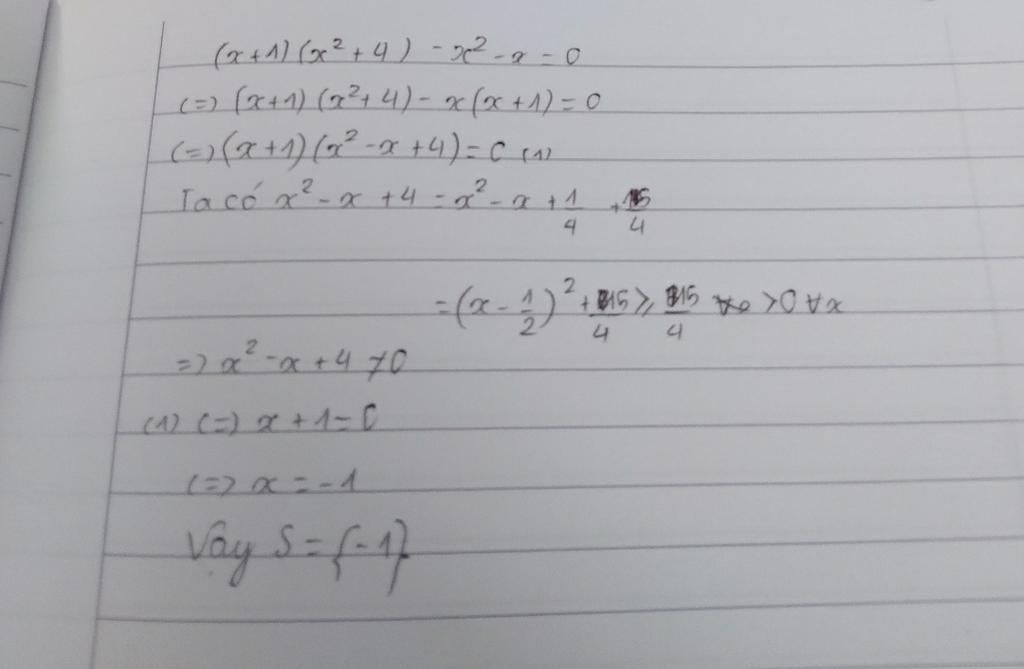 (x+1)(x²+4) - x² - x = 0
(=) (x+1)(x²+4) - x(x+1) = 0
(=) (x+1)(x² - x + 4) = 0 (1)
Ta có x² - x + 4 = x² - x + 1/4 + 15/4
= (x - 1/2)² + 15/4 ≥ 15/4 > 0 ∀x
=) x² - x + 4 ≠ 0
(1) (=) x + 1 = 0
(=) x = -1
Vậy S = {-1}